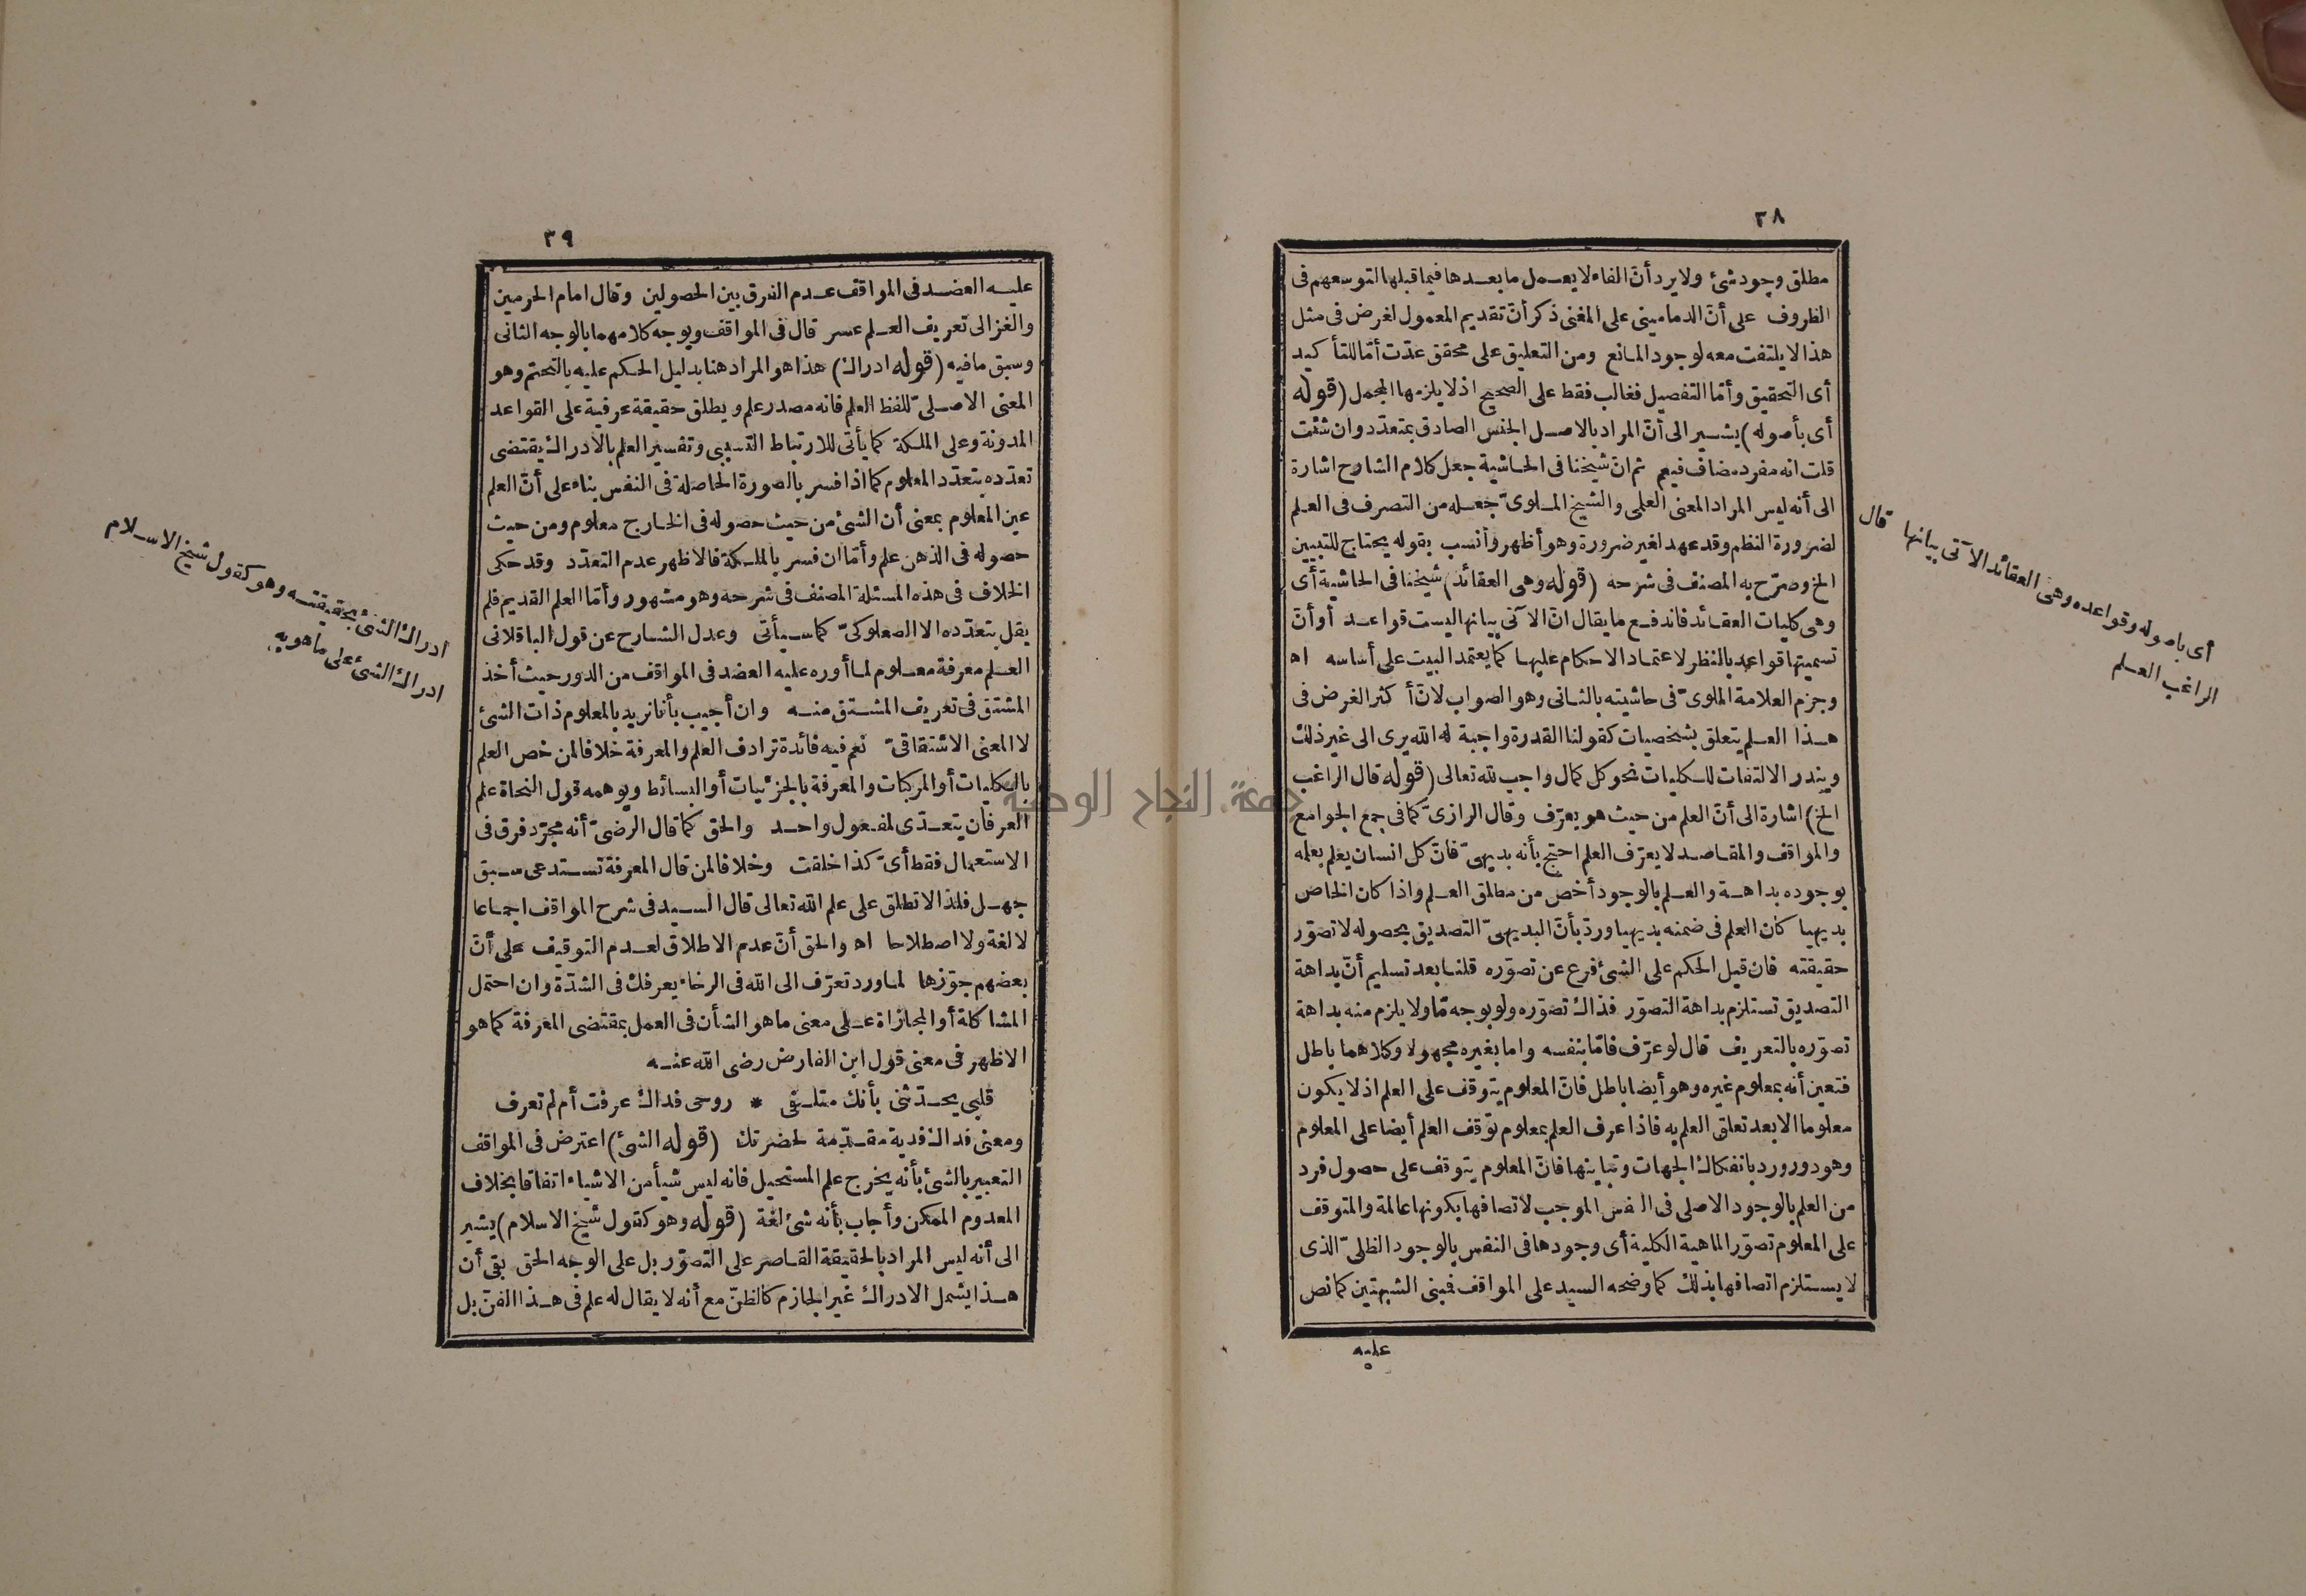 ٣٨
مطلق وجود شئ ولا يرد أن الفاء لا يعمل ما بعدها فيما قبلها لتوسعهم فى
الظروف على أنّ الدمامينى على المغنى ذكر أنّ تقديم المعمول لغرض فى مثل
هذا لا يلتفت معه لوجود المانع ومن التعليق على محقق عدّت أمّا للتأكيد
أى التحقيق وأمّا التفصيل فغالب فقط على الصحيح اذ لا يلزمها المجمل (قوله
أى بأصوله) يشير الى أنّ المراد بالاصل الجنس الصادق بمتعدّد وان شئت
قلت انه مفرد مضاف فيعم ثم انّ شيخنا فى الحاشية جعل كلام الشارح اشارة
الى أنه ليس المراد المعنى العلمى والشيخ الملوىّ جعله من التصرف فى العلم
لضرورة النظم وقد عهد لغير ضرورة وهو أظهر وأنسب بقوله يحتاج للتبيين
الخ وصرّح به المصنف فى شرحه (قوله وهى العقائد) شيخنا فى الحاشية أى
وهى كليات العقائد فاندفع ما يقال انّ الآتى بيانها ليست قواعد أو أنّ
تسميتها قواعد بالنظر لاعتماد الاحكام عليها كما يعتمد البيت على أساسه اه
وجزم العلامة الملوىّ فى حاشيته بالثانى وهو الصواب لانّ أكثر الغرض فى
هذا العلم يتعلق بشخصيات كقولنا القدرة واجبة له الله يرى الى غير ذلك
ويندر الالتفات للكليات نحو كل كمال واجب لله تعالى (قوله قال الراغب
الخ) اشارة الى أنّ العلم من حيث هو يعرّف وقال الرازىّ كما فى جمع الجوامع
والمواقف والمقاصد لا يعرّف العلم احتج بأنه بديهىّ فانّ كل انسان يعلم بعلمه
بوجوده بداهة والعلم بالوجود أخص من مطلق العلم واذا كان الخاص
بديهيا كان العلم فى ضمنه بديهيا وردّ بأنّ البديهىّ التصديق بحصوله لا تصوّر
حقيقته فان قيل الحكم على الشئ فرع عن تصوّره قلنا بعد تسليم أنّ بداهة
التصديق تستلزم بداهة التصوّر فذاك تصوّره ولو بوجه مّا ولا يلزم منه بداهة
تصوّره بالتعريف قال لو عرّف فامّا بنفسه واما بغيره مجهولا وكلاهما باطل
فتعين أنه بمعلوم غيره وهو أيضا باطل فانّ المعلوم يتوقف على العلم اذ لا يكون
معلوما الا بعد تعلق العلم به فاذا عرف العلم بمعلوم توقف العلم أيضا على المعلوم
وهو دور ورد بانفكاك الجهات وتباينها فانّ المعلوم يتوقف على حصول فرد
من العلم بالوجود الاصلى فى النفس الموجب لاتصافها بكونها عالمة والمتوقف
على المعلوم تصوّر الماهية الكلية أى وجودها فى النفس بالوجود الظلىّ الذى
لا يستلزم اتصافها بذلك كما وضحه السيد على المواقف فمبنى الشبهتين كما نص
عليه
أى باصوله وقواعده وهى العقائد الآتى بيانها قال
الراغب العلم
٣٩
عليه العضد فى المواقف عدم الفرق بين الحصولين وقال امام الحرمين
والغزالى تعريف العلم عسر قال فى المواقف ويوجه كلامهما بالوجه الثانى
وسبق ما فيه (قوله ادراك) هذا هو المراد هنا بدليل الحكم عليه بالتحتم وهو
المعنى الاصلىّ للفظ العلم فانه مصدر علم ويطلق حقيقة عرفية على القواعد
المدونة وعلى الملكة كما يأتى للارتباط التسببى وتفسير العلم بالادراك يقتضى
تعدّده بتعدّد المعلوم كما اذا فسر بالصورة الحاصلة فى النفس بناء على أنّ العلم
عين المعلوم بمعنى أن الشئ من حيث حصوله فى الخارج معلوم ومن حيث
حصوله فى الذهن علم وأمّا ان فسر بالملكة فالاظهر عدم التعدّد وقد حكى
الخلاف فى هذه المسئلة المصنف فى شرحه وهو مشهور وأمّا العلم القديم فلم
يقل بتعدّده الا الصعلوكىّ كما سيأتى وعدل الشارح عن قول الباقلانى
العلم معرفة معلوم لما أورده عليه العضد فى المواقف من الدور حيث أخذ
المشتق فى تعريف المشتق منه وان أجيب بأنا نريد بالمعلوم ذات الشئ
لا المعنى الاشتقاقىّ نعم فيه فائدة ترادف العلم والمعرفة خلافا لمن خص العلم
بالكليات أو المركبات والمعرفة بالجزئيات أو البسائط ويوهمه قول النحاة علم
العرفان يتعدّى لمفعول واحد والحق كما قال الرضىّ أنه مجرّد فرق فى
الاستعمال فقط أىّ كذا خلقت وخلافا لمن قال المعرفة تستدعى سبق
جهل فلذا لا تطلق على علم الله تعالى قال السيد فى شرح المواقف اجماعا
لا لغة ولا اصطلاحا اه والحق أنّ عدم الاطلاق لعدم التوقيف على أنّ
بعضهم جوّزها لما ورد تعرّف الى الله فى الرخاء يعرفك فى الشدّة وان احتمل
المشاكلة أو المجازاة على معنى ما هو الشأن فى العمل بمقتضى المعرفة كما هو
الاظهر فى معنى قول ابن الفارض رضى الله عنه
قلبى يحدّثنى بأنك متلفى * روحى فداك عرفت أم لم تعرف
ومعنى فداك فدية مقدّمة لحضرتك (قوله الشئ) اعترض فى المواقف
التعبير بالشئ بأنه يخرج علم المستحيل فانه ليس شيأ من الاشياء اتفاقا بخلاف
المعدوم الممكن وأجاب بأنه شئ لغة (قوله وهو كقول شيخ الاسلام) يشير
الى أنه ليس المراد بالحقيقة القاصر على التصوّر بل على الوجه الحق بقى أن
هذا يشمل الادراك غير الجازم كالظنّ مع أنه لا يقال له علم فى هذا الفنّ بل
ادراك الشئ بحقيقته وهو كقول شيخ الاسلام
ادراك الشئ على ما هو به
جامعة النجاح الوطنية